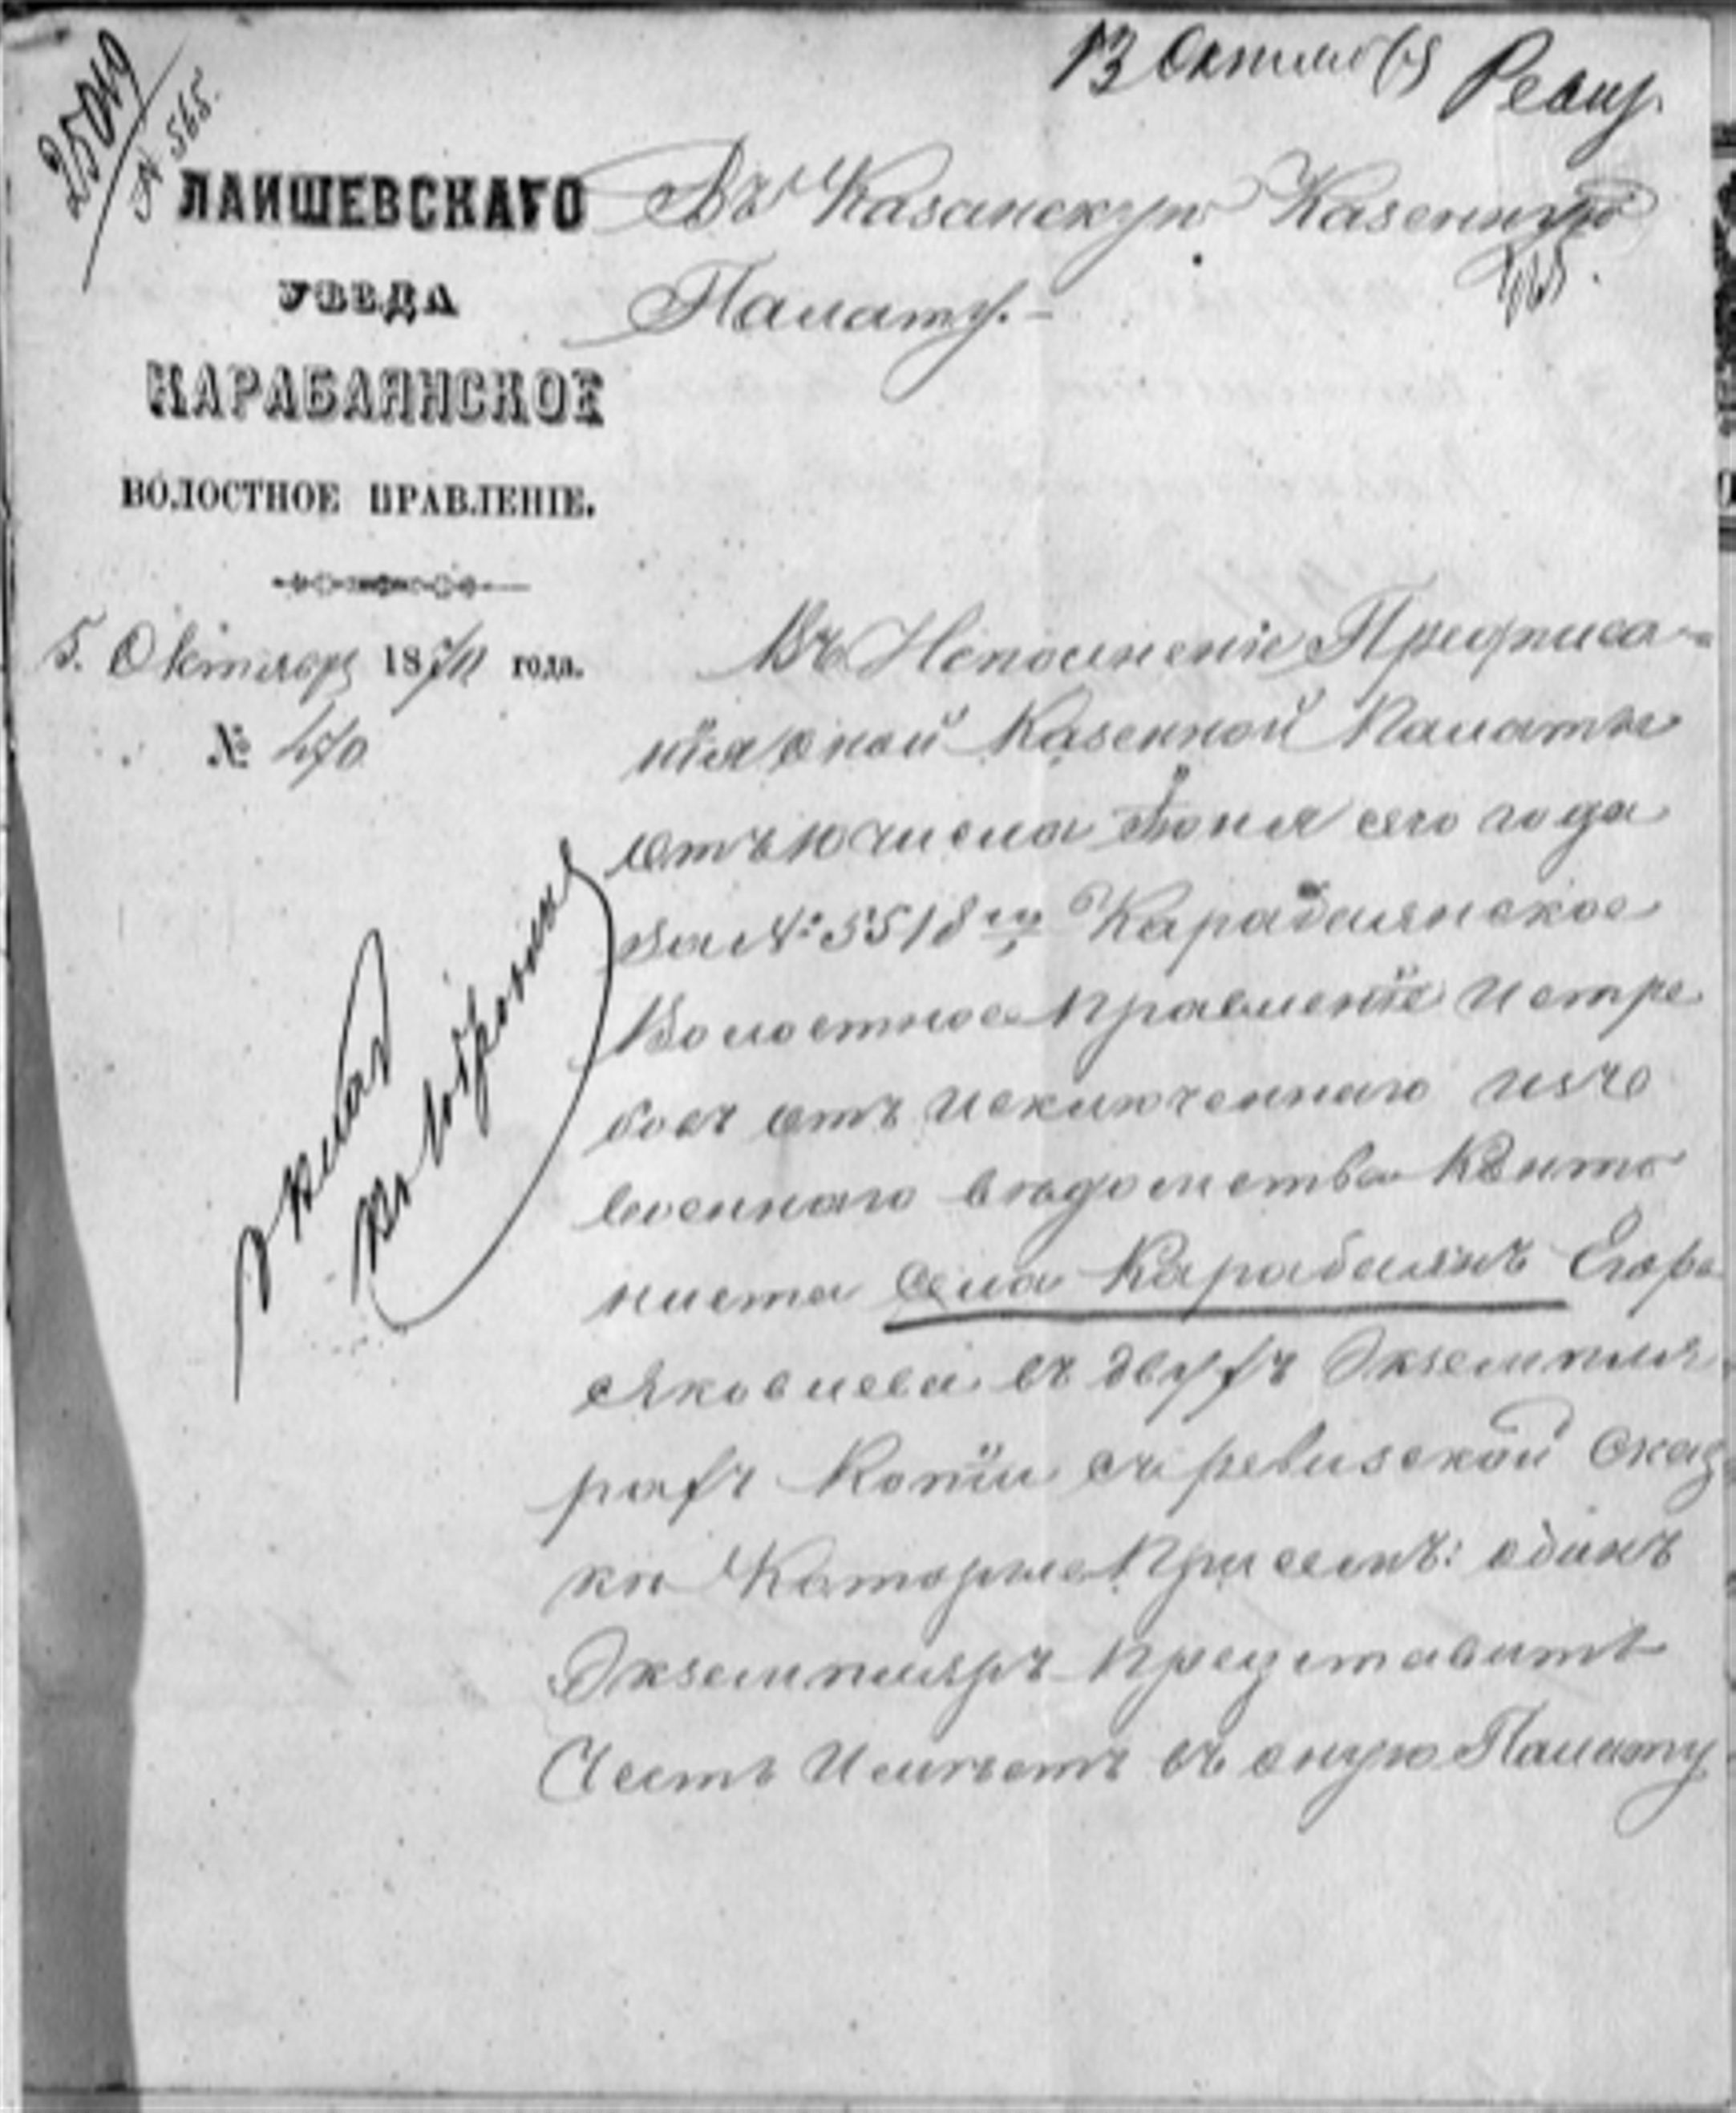 25019
№ 565.
13 Октября
ЛАИШЕВСКАГО
УѢЗДА
КАРАБАЯНСКОЕ
ВОЛОСТНОЕ ПРАВЛЕНІЕ.
5. Октября 1870 года.
№ 470
Въ Казанскую Казенную
Палату.-
Въ Исполненіе Предписа-
нія оной Казенной Палаты
отъ 10 числа Іюня сего года
За № 5518 Карабаянское
Волостное Правленіе истре
бовъ отъ исключеннаго изъ
военнаго вѣдомства Канто
ниста села Карабаянъ Егора
Яковлева въ двухъ Экземпля
рахъ Копіи съ ревизской Сказ
ки Каторые При семъ: одинъ
Экземпляръ Представить
Честь Имѣетъ въ оную Палату